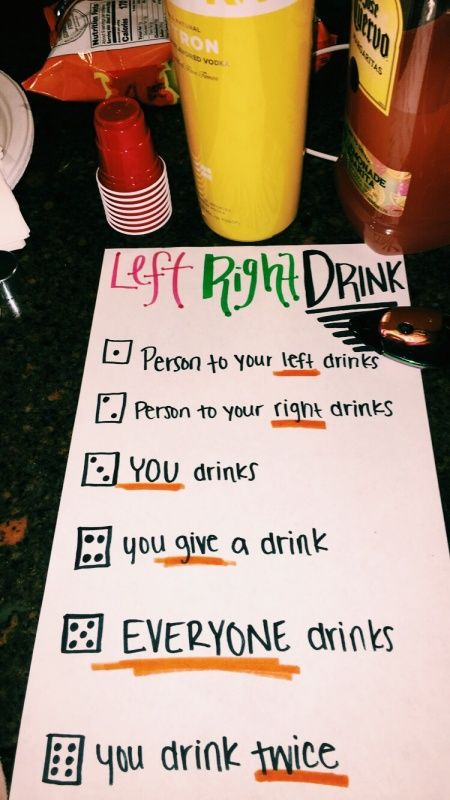 Nutrition
Calories
TRON
VORED VODKA
Cuervo
MARGARITAS
Left Right DRINK
Person to your left drinks
Person to your right drinks
YOU drinks
you give a drink
EVERYONE drinks
you drink twice